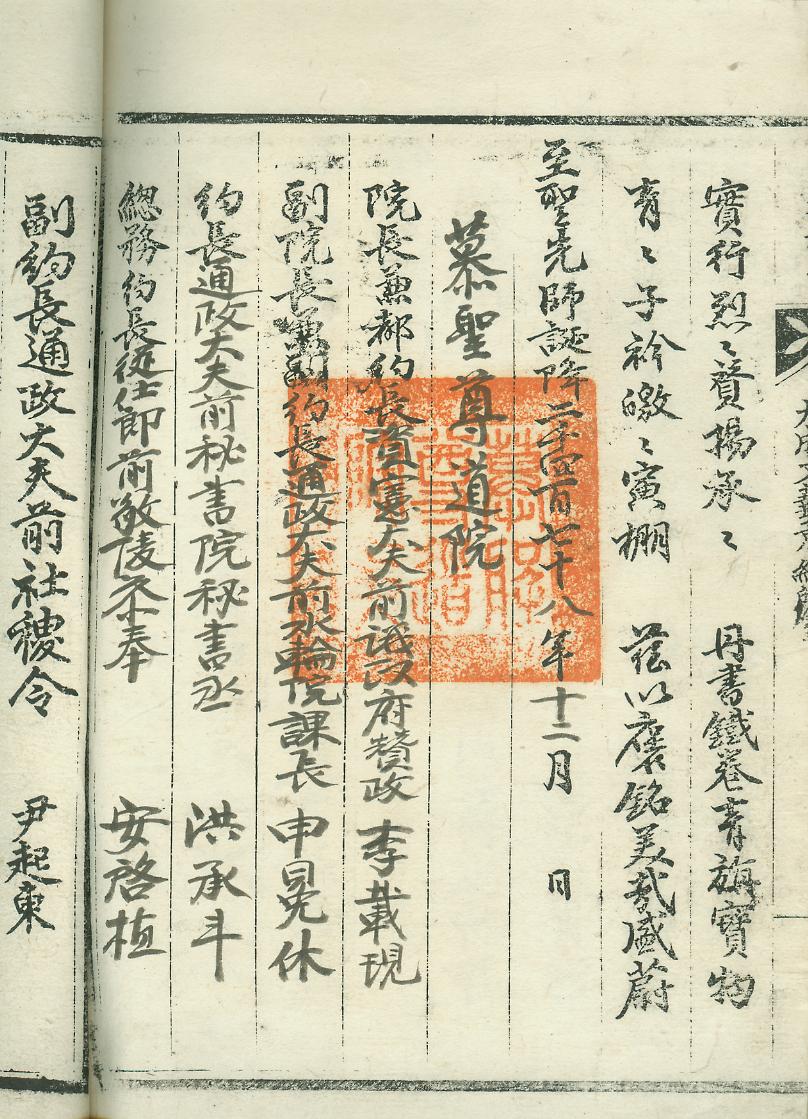 實行烈〻賛揚承〻 丹書鐵卷靑旃寶物
靑〻子衿噭〻寅棚 玆以褒銘美哉盛蔚
至聖先師誕降二千四百七十八年十二月 日
慕聖尊道院
院長兼都約長資憲大夫前議政府贊政 李載現
副院長兼副約長通政大夫前水輪院課長 申冕休
約長通政大夫前秘書院秘書丞 洪承斗
總務約長從仕郎前敬陵叅奉 安啓植
副約長通政大夫前社稷令 尹起東